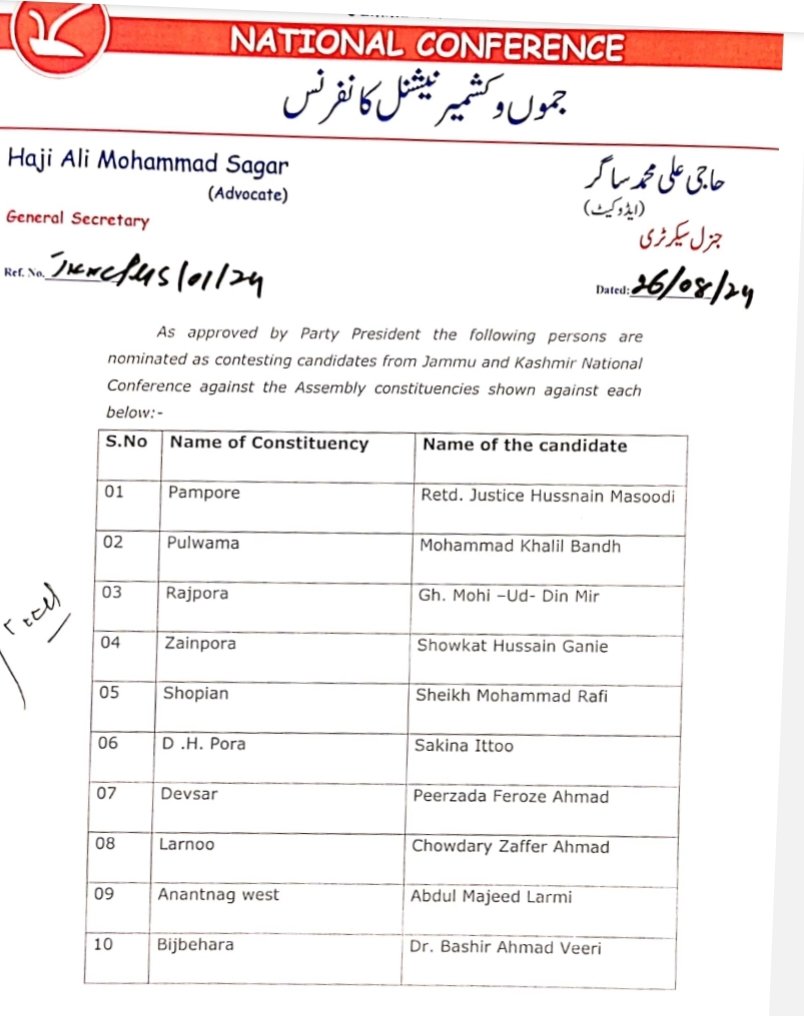 NATIONAL CONFERENCE
جموں و کشمیر نیشنل کانفرنس
Haji Ali Mohammad Sagar
(Advocate)
General Secretary
حاجی علی محمد ساگر
(ایڈوکیٹ)
جنرل سیکرٹری
Ref. No. /01/24
Dated: 26/08/24
As approved by Party President the following persons are
nominated as contesting candidates from Jammu and Kashmir National
Conference against the Assembly constituencies shown against each
below:-
S.No Name of Constituency Name of the candidate
01 Pampore Retd. Justice Hussnain Masoodi
02 Pulwama Mohammad Khalil Bandh
03 Rajpora Gh. Mohi –Ud- Din Mir
04 Zainpora Showkat Hussain Ganie
05 Shopian Sheikh Mohammad Rafi
06 D .H. Pora Sakina Ittoo
07 Devsar Peerzada Feroze Ahmad
08 Larnoo Chowdary Zaffer Ahmad
09 Anantnag west Abdul Majeed Larmi
10 Bijbehara Dr. Bashir Ahmad Veeri